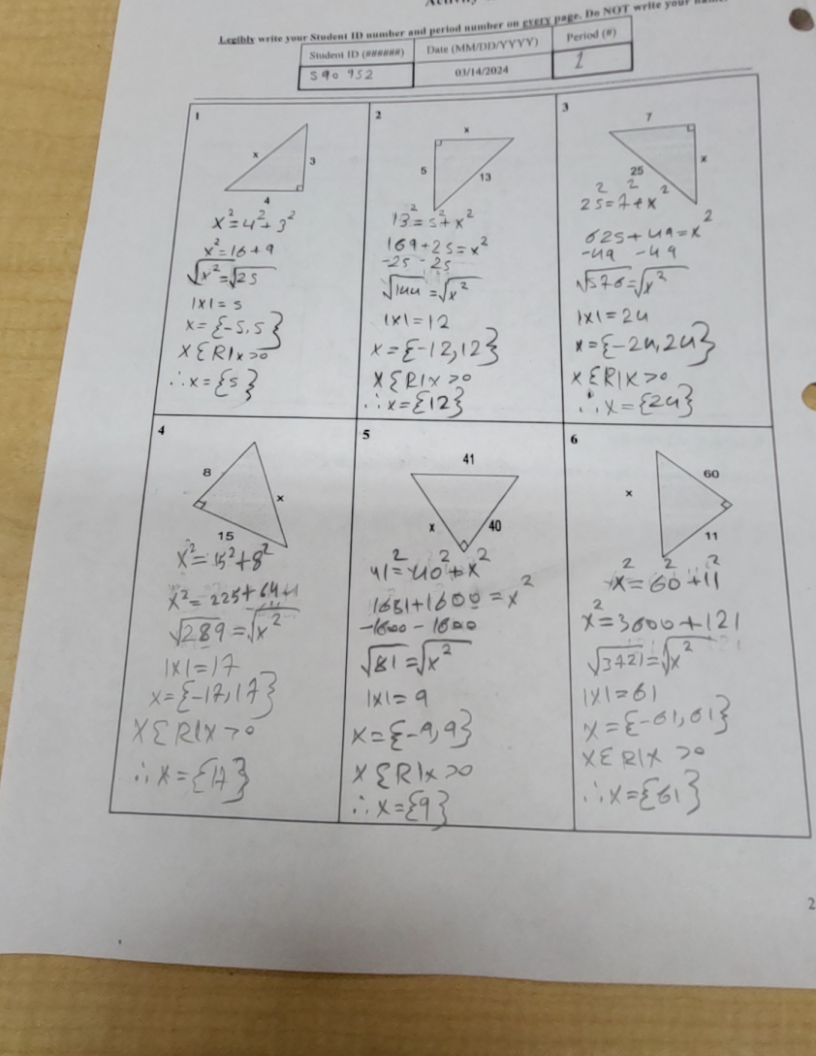 Legibly write your Student ID number and period number on every page. Do NOT write your
Student ID (######) Date (MM/DD/YYYY) Period (#)
590 952 03/14/2024 1
1
x
3
4
x²=4²+3²
x²=16+9
√x²=√25
|x|=5
x={-5,5}
x{R|x>0
∴x={5}
2
x
5
13
13²=5²+x²
169+25=x²
-25 -25
√144=√x²
|x|=12
x={-12,12}
x{R|x>0
∴x={12}
3
7
25
x
25²=7²+x²
625+49=x²
-49 -49
√576=√x²
|x|=24
x={-24,24}
x{R|x>0
∴x={24}
4
8
x
15
x²=15²+8²
x²=225+64
√289=√x²
|x|=17
x={-17,17}
x{R|x>0
∴x={17}
5
41
x
40
41²=40²+x²
1681+1600=x²
-1600-1600
√81=√x²
|x|=9
x={-9,9}
x{R|x>0
∴x={9}
6
x
60
11
x²=60²+11²
x²=3600+121
√3721=√x²
|x|=61
x={-61,61}
x{R|x>0
∴x={61}
2